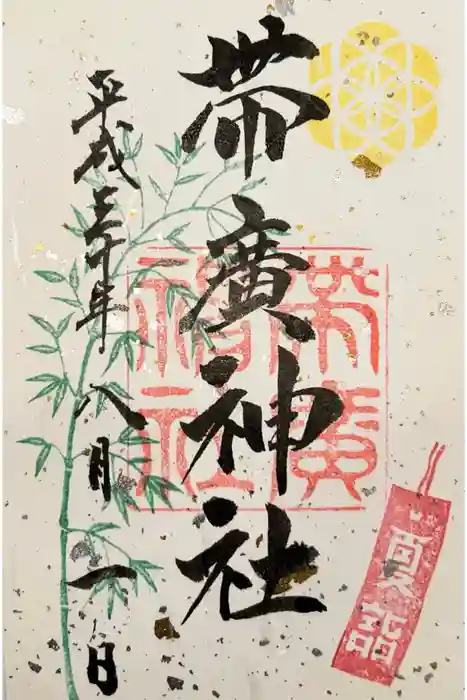 帯廣神社
平成三十年八月一日
帯廣神社
夏詣